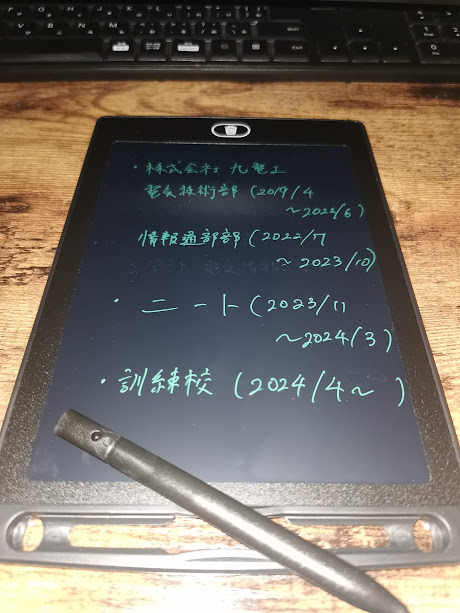 ・株式会社 九電工
電気技術部 (2019/4
～2022/6)
情報通部部 (2022/7
～2023/10)
・ニート (2023/11
～2024/3)
・訓練校 (2024/4～ )